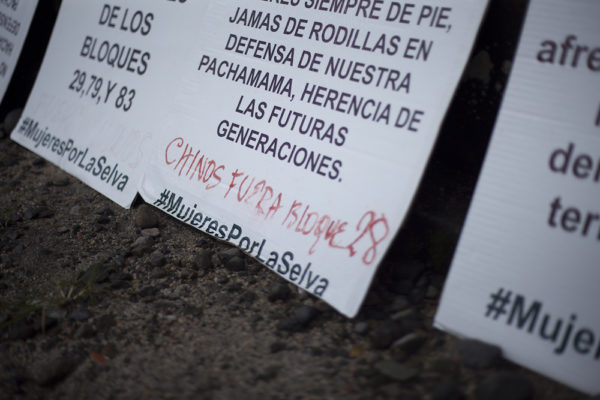 DE LOS
BLOQUES
29,79,Y 83
#MujeresPorLaSelva
SIEMPRE DE PIE,
JAMAS DE RODILLAS EN
DEFENSA DE NUESTRA
PACHAMAMA, HERENCIA DE
LAS FUTURAS
GENERACIONES.
CHINOS FUERA BLOQUE 28
#MujeresPorLaSelva
afre
del
terr
#Mujer